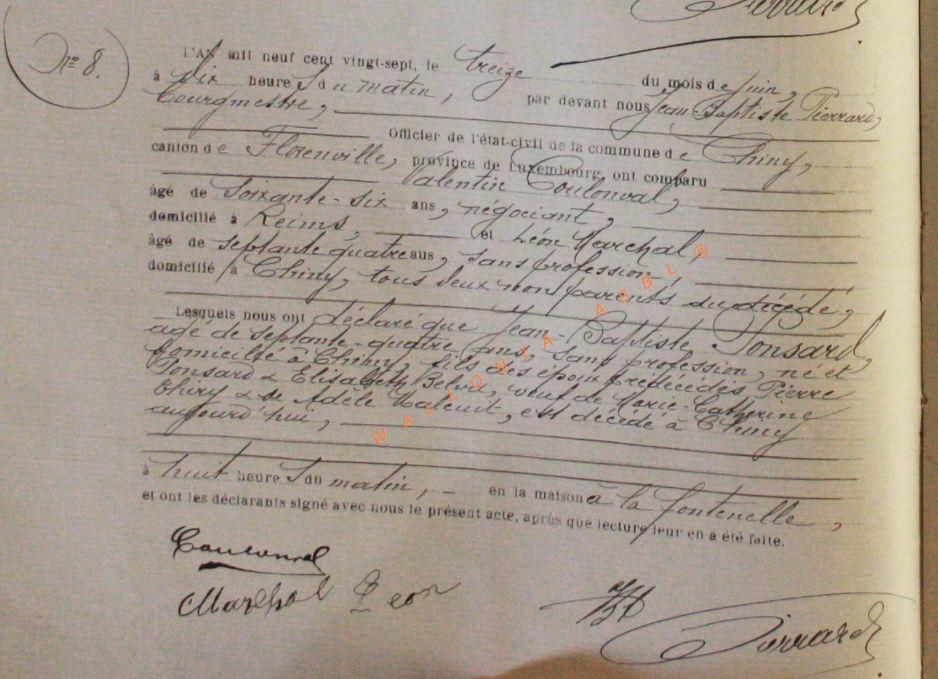 Pierrard
N° 8.
L'AN mil neuf cent vingt-sept, le treize du mois de juin,
à dix heures du matin, par devant nous Jean-Baptiste Pierrard,
bourgmestre,
Officier de l'état-civil de la commune de Chiny,
canton de Florenville, province de Luxembourg, ont comparu
Valentin Coulonval,
âgé de soixante-six ans, négociant,
domicilié à Reims, et Léon Marchal,
âgé de septante quatre ans, sans profession,
domicilié à Chiny, tous deux non parents du décédé,
Lesquels nous ont déclaré que Jean-Baptiste Ponsard,
âgé de septante-quatre ans, sans profession, né et
domicilié à Chiny, fils des époux prédécédés Pierre
Ponsard & Elisabeth, veuf de Marie-Catherine
Thiry & de Adèle, est décédé à Chiny
aujourd'hui,
à huit heures du matin, en la maison à la fontenelle,
et ont les déclarants signé avec nous le présent acte, après que lecture leur en a été faite.
Coulonval
Marchal Leon
Pierrard
WALLONIA ASBL ©